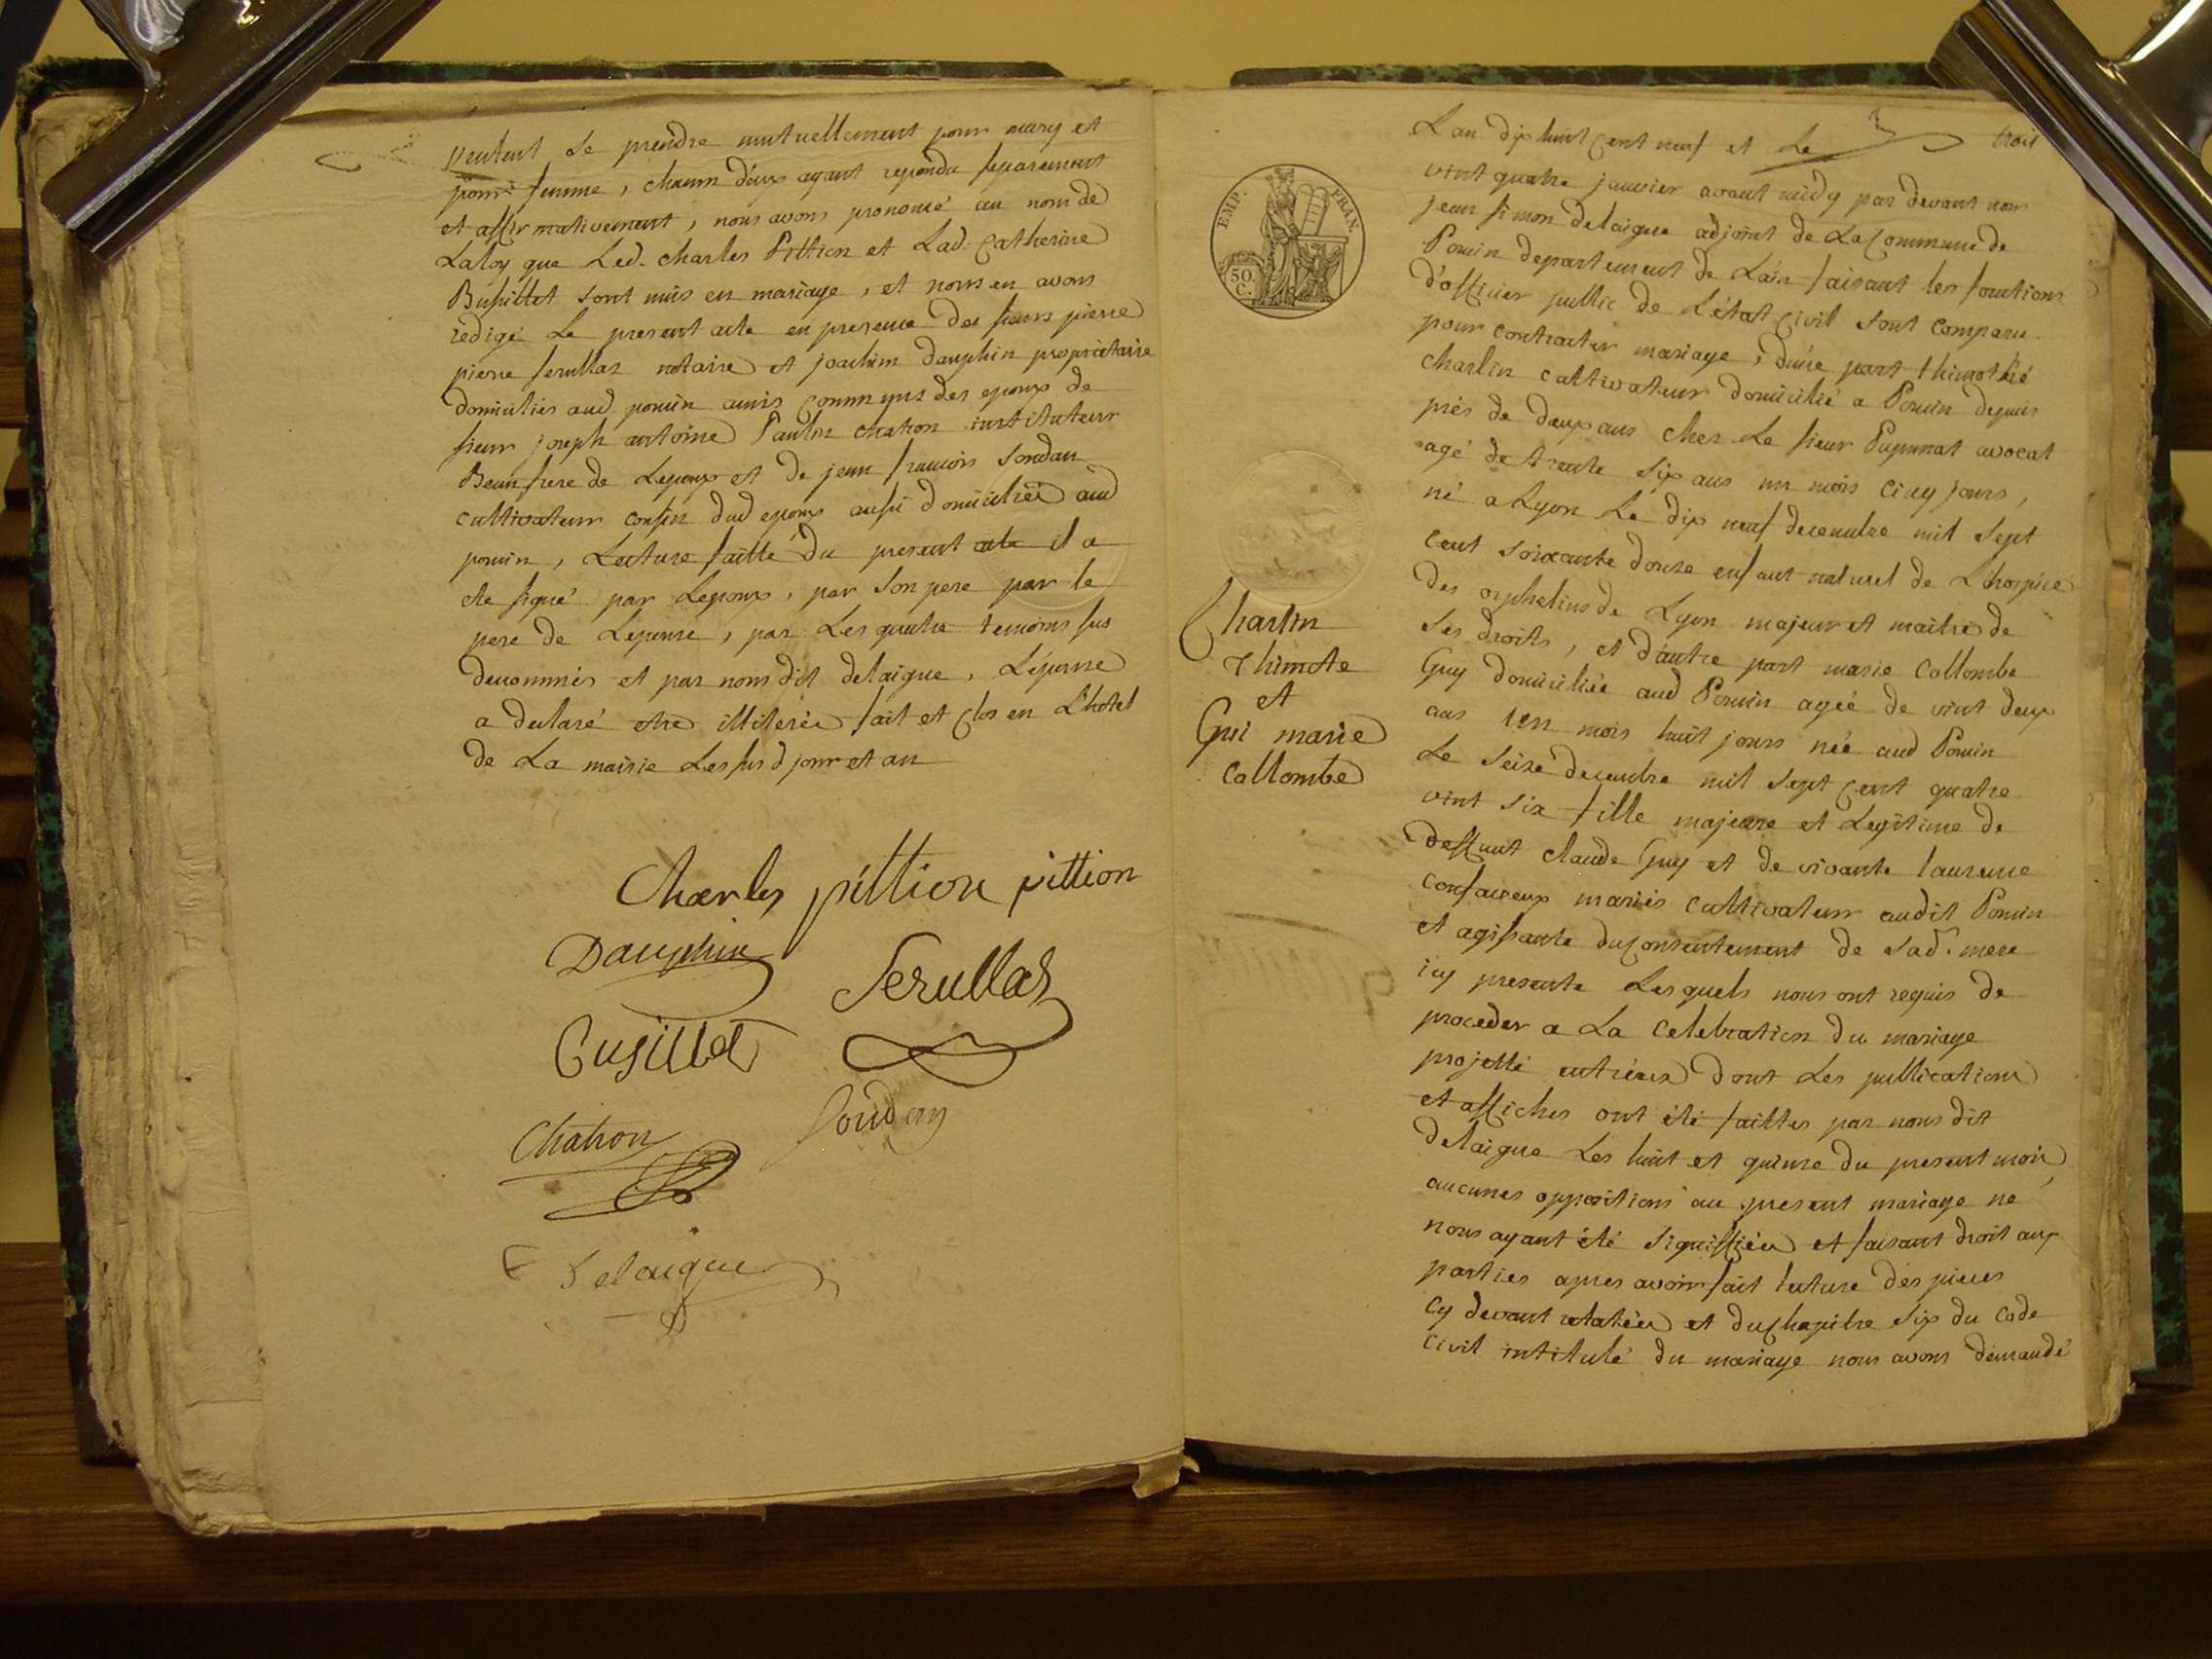 veulent se prendre mutuellement pour mary et
pour femme, chacun d'eux ayant repondu separement
et affirmativement, nous avons prononcé au nom de
La loy que Led. charles Pittion et Lad. Catherine
sont unis en mariage, et nous en avons
redigé Le present acte en presence des sieurs pierre
pierre serullas notaire et joachim dauphin proprietaire
domiciliés aud ponsin amis communs des epoux de
sieur joseph antoine Paulin chatron instituteur
Beaufrere de Lepoux et de jean francois Soudan
cultivateur cousin dud epoux aussi domiciliés aud
ponsin, Lecture faitte du present acte il a
ete signé par Lepoux, par son pere par le
pere de Lepouse, par Les quatre temoins sus
denommés et par nous dit delaigue, Lépouse
a declaré etre illiterée fait et clos en L'hotel
de La mairie Les sus d jour et an
Charles pittion pittion
Dauphin
Serullas
Cusillet
Soudan
Chatron
Delaigue
trois
EMP. FRAN.
50. C.
Charlin
Thimote
et
Gui marie
Collombe
L an dix huit cent neuf et Le
vint quatre janvier avant midy par devant nous
jean simon delaigue adjoint de La Commune de
Ponsin departement de Lain faisant les fonctions
d'officier public de L'état civil sont comparu
pour contracter mariage, d'une part thimothé
Charlin cultivateur domicilié a Ponsin depuis
prés de deux ans chez Le sieur avocat
agé de trente six ans un mois cinq jours,
né a Lyon Le dix neuf decembre mil sept
cent soixante douze enfant naturel de L'hospice
des orphelins de Lyon majeur et maitre de
ses droits, et d'autre part marie Collombe
Guy domiciliée aud Ponsin agée de vint deux
ans un mois huit jours née aud Ponsin
Le seize decembre mil sept cent quatre
vint six fille majeure et Legitime de
deffunt claude Guy et de vivante laurence
mariés cultivateur audit Ponsin
et agissante du consentement de sad. mere
icy presente Les quels nous ont requis de
proceder a La celebration du mariage
projetté entr'eux dont Les publications
et affiches ont été faittes par nous dit
delaigue Les huit et quinze du present mois,
aucunes oppositions au present mariage ne
nous ayant été signiffiée et faisant droit aux
parties apres avoir fait lecture des pieces
cy devant relatées et du chapitre six du code
civil intitulé du mariage nous avons demandé